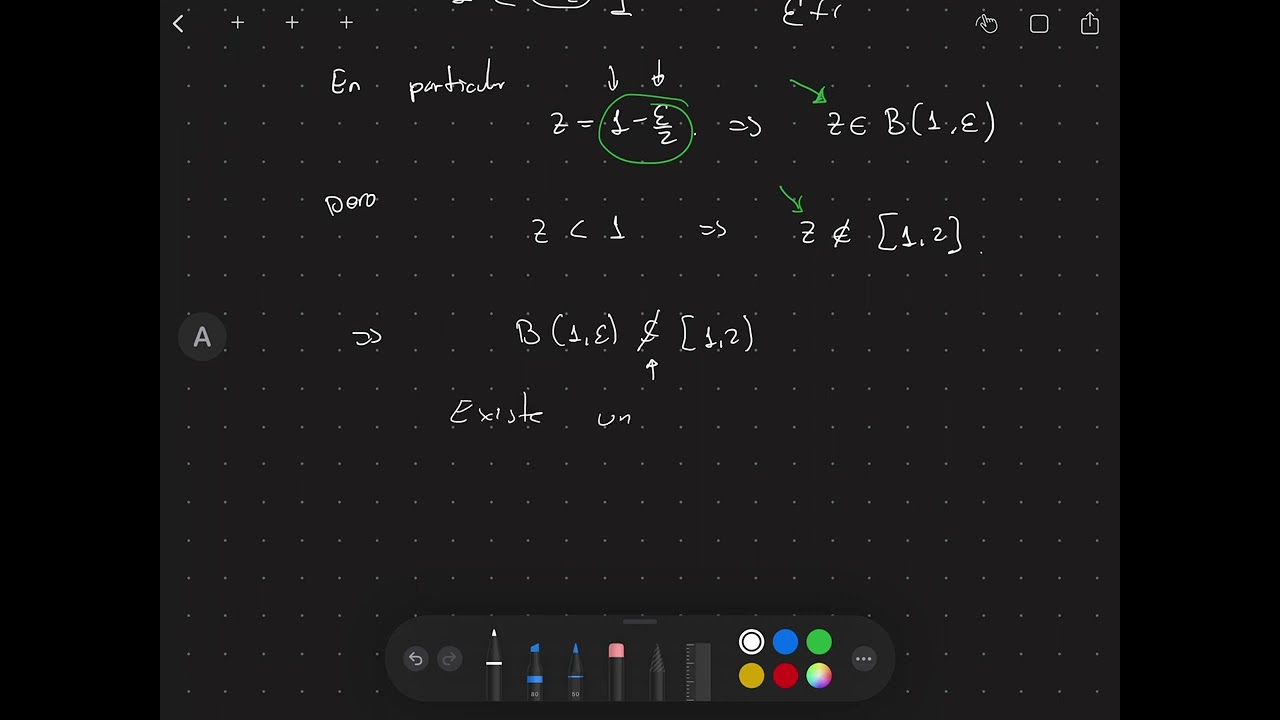 En particular
z = 1 - ε/2. => z ∈ B(1,ε)
Pero
z < 1 => z ∉ [1,2].
=> B(1,ε) ⊄ [1,2)
Existe un
A
80 50